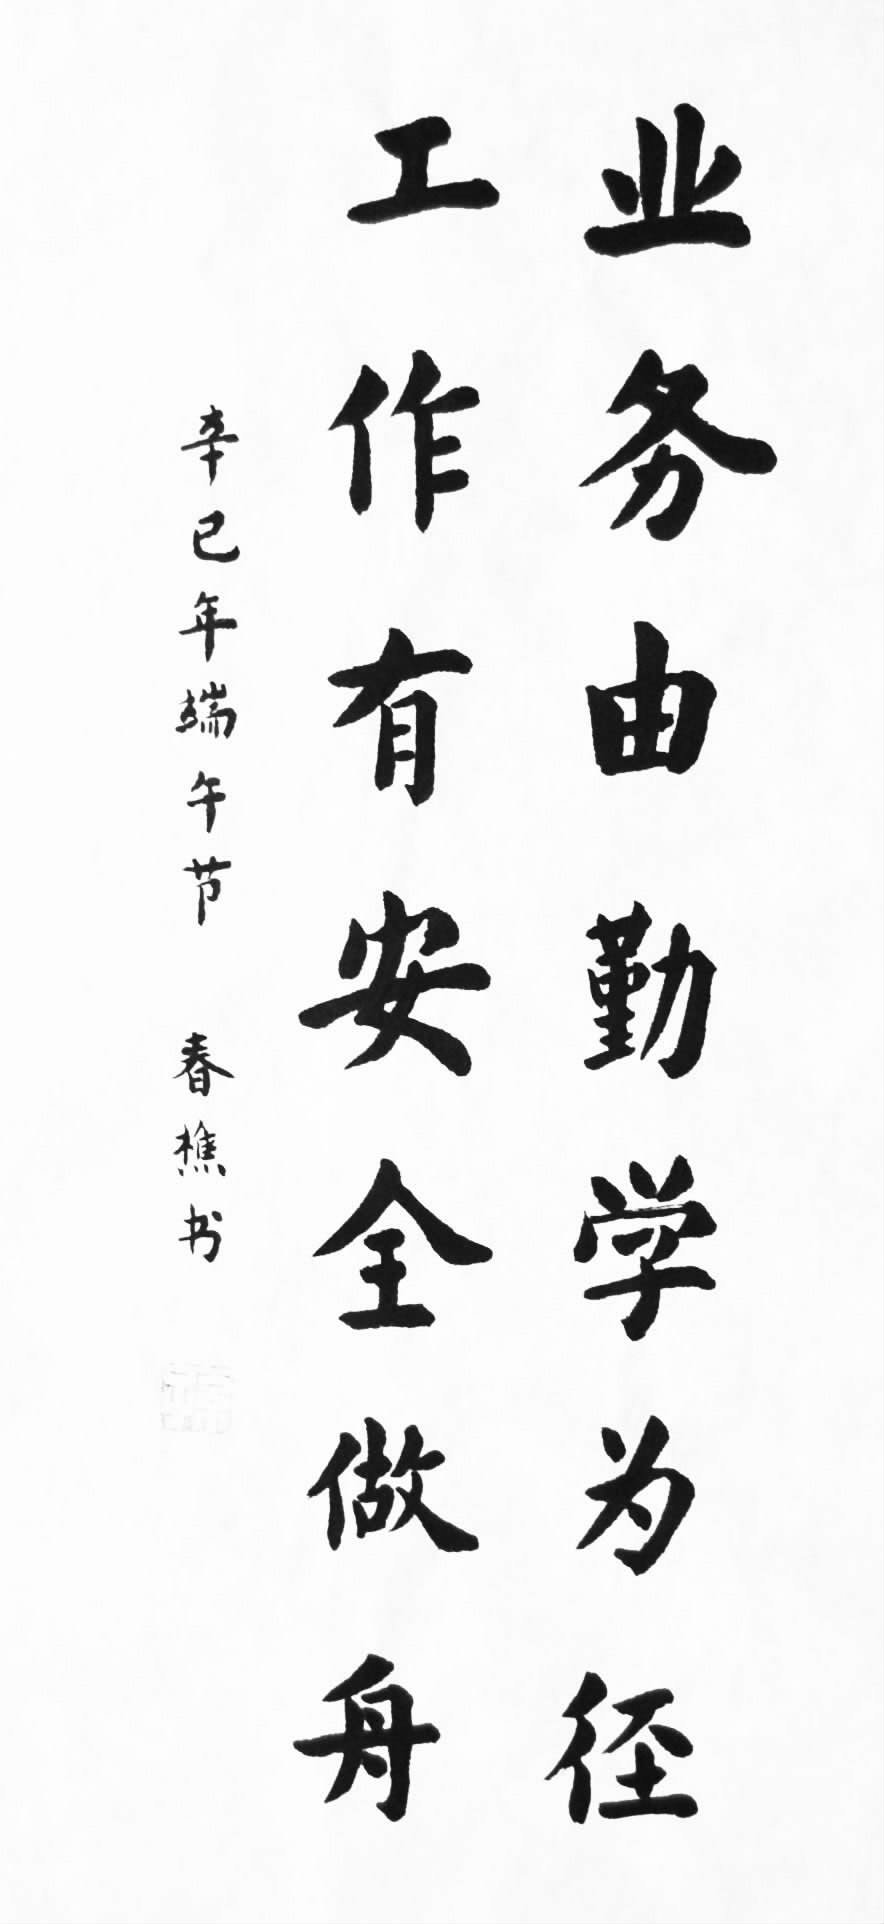 业务由勤学为径
工作有安全做舟
辛巳年端午节 春樵书